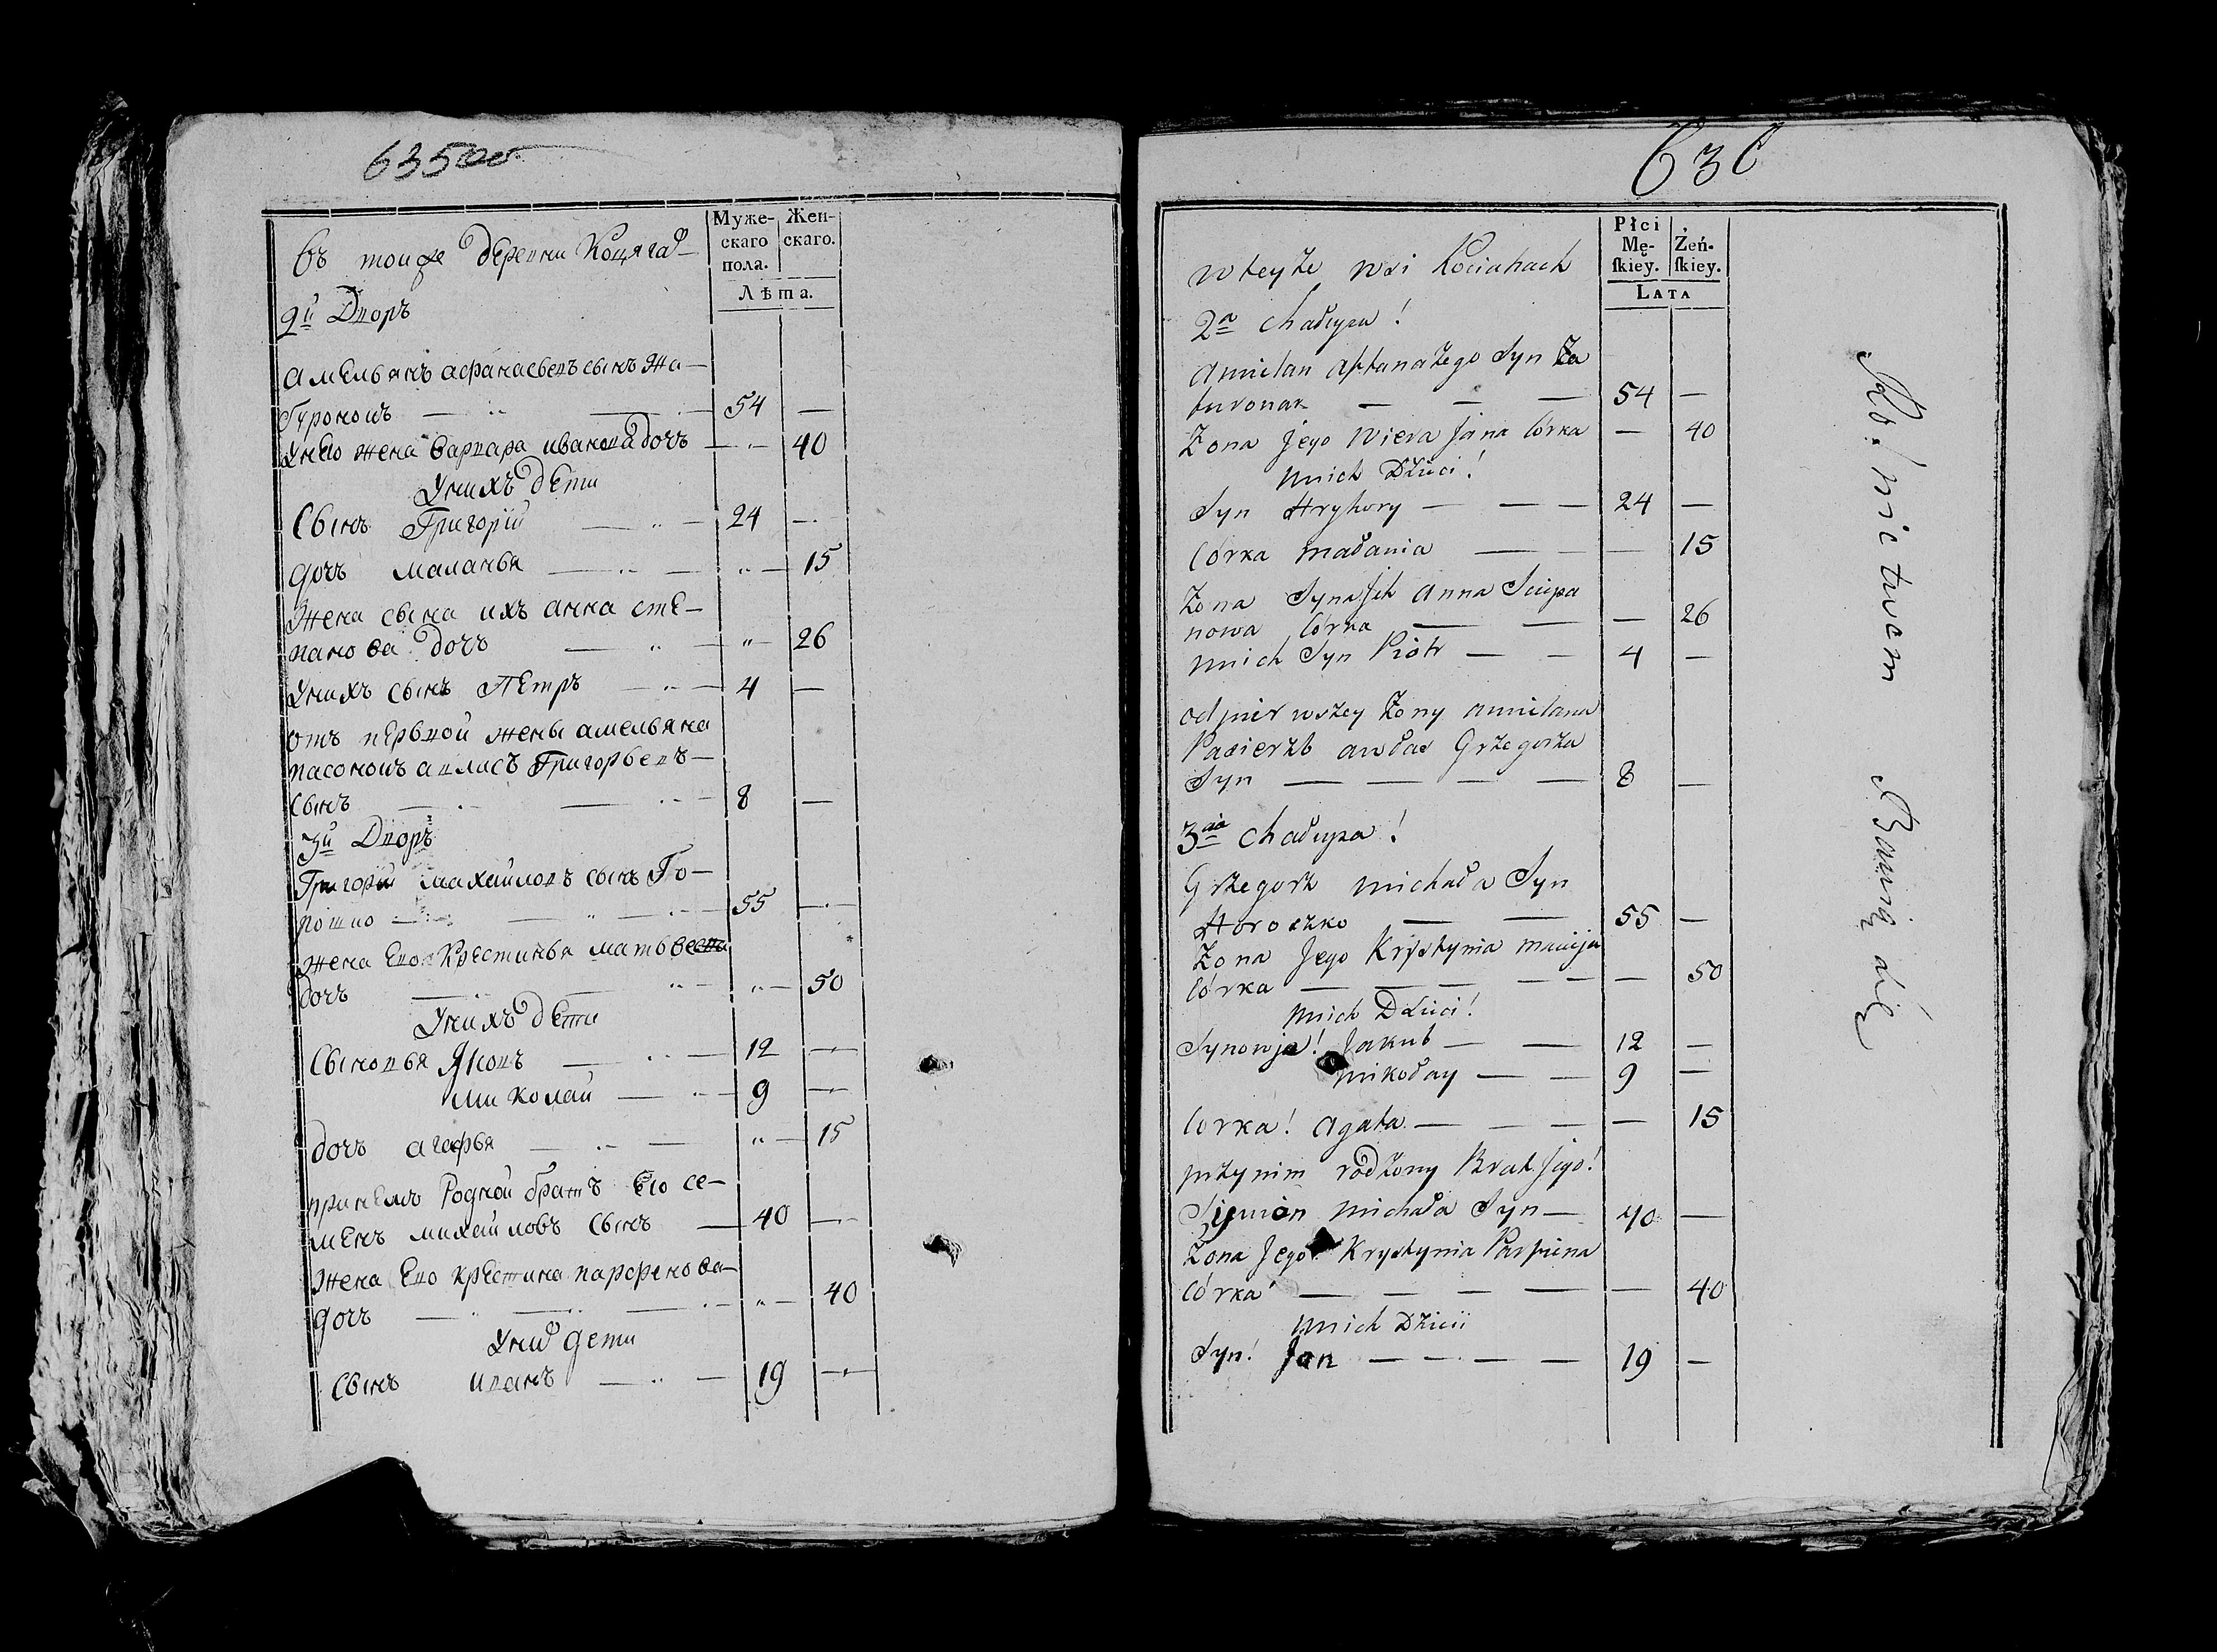 635об
Муже-
скаго
пола.
Жен-
скаго.
Лѣта.
въ тойже деревни Коцягах
2й Дворъ
Амельянъ афанасьевъ сынъ За-
туронокъ — — 54 —
Унего жена варвара иванова дочъ — 40
Унихъ дети
Сынъ Григорій — — 24 —
дочъ маланья — — — 15
Жена сына ихъ анна сте-
панова дочъ — — — 26
Унихъ сынъ Петръ — 4 —
отъ первой жены амельяна
пасонокъ авласъ Григорьевъ
сынъ — — 8 —
3й Дворъ
Григорій михайловъ сынъ Го-
рошко — — 55 —
жена его Крестинья матвеева
дочъ — — — 50
Унихъ дети
Сыновья Яковъ — 12 —
Миколай — 9 —
дочъ агафья — — — 15
принемъ Родной братъ его се-
менъ михайловъ сынъ — 40 —
Жена его крестина парфенова
дочъ — — — 40
Уних дети
Сынъ иванъ — — 19 —
636
Płci
Mę-
skiey.
Żeń-
skiey.
LATA
w teyże wsi Kociahach
2a chałupa!
Amielan Aftanażego Syn Za
turonak — — — 54 —
Żona Jego Wiera Jana Córka — 40
unich Dzieci!
Syn Hryhory — — — 24 —
Córka małania — — — 15
Żona Syna Jch Anna Sciepa
nowa Córka — — — 26
unich Syn Piotr — — 4 —
od pierwszey Żony amielana
Pasierzb awłas Grzegorza
Syn — — — — 8 —
3cia chałupa!
Grzegorz michała Syn
Horoszko — — 55 —
Żona Jego Krystynia macieja
Córka — — — — — 50
unich Dzieci!
Synowja! Jakub — — 12 —
mikołay — — 9 —
Corka! Agata — — — — 15
przy nim rodzony Brat Jego!
Siemion michała Syn — 40 —
Żona Jego Krystynia Parfiena
Córka — — — — — 40
unich Dzieci
Syn! Jan — — — — 19 —
Bawią się